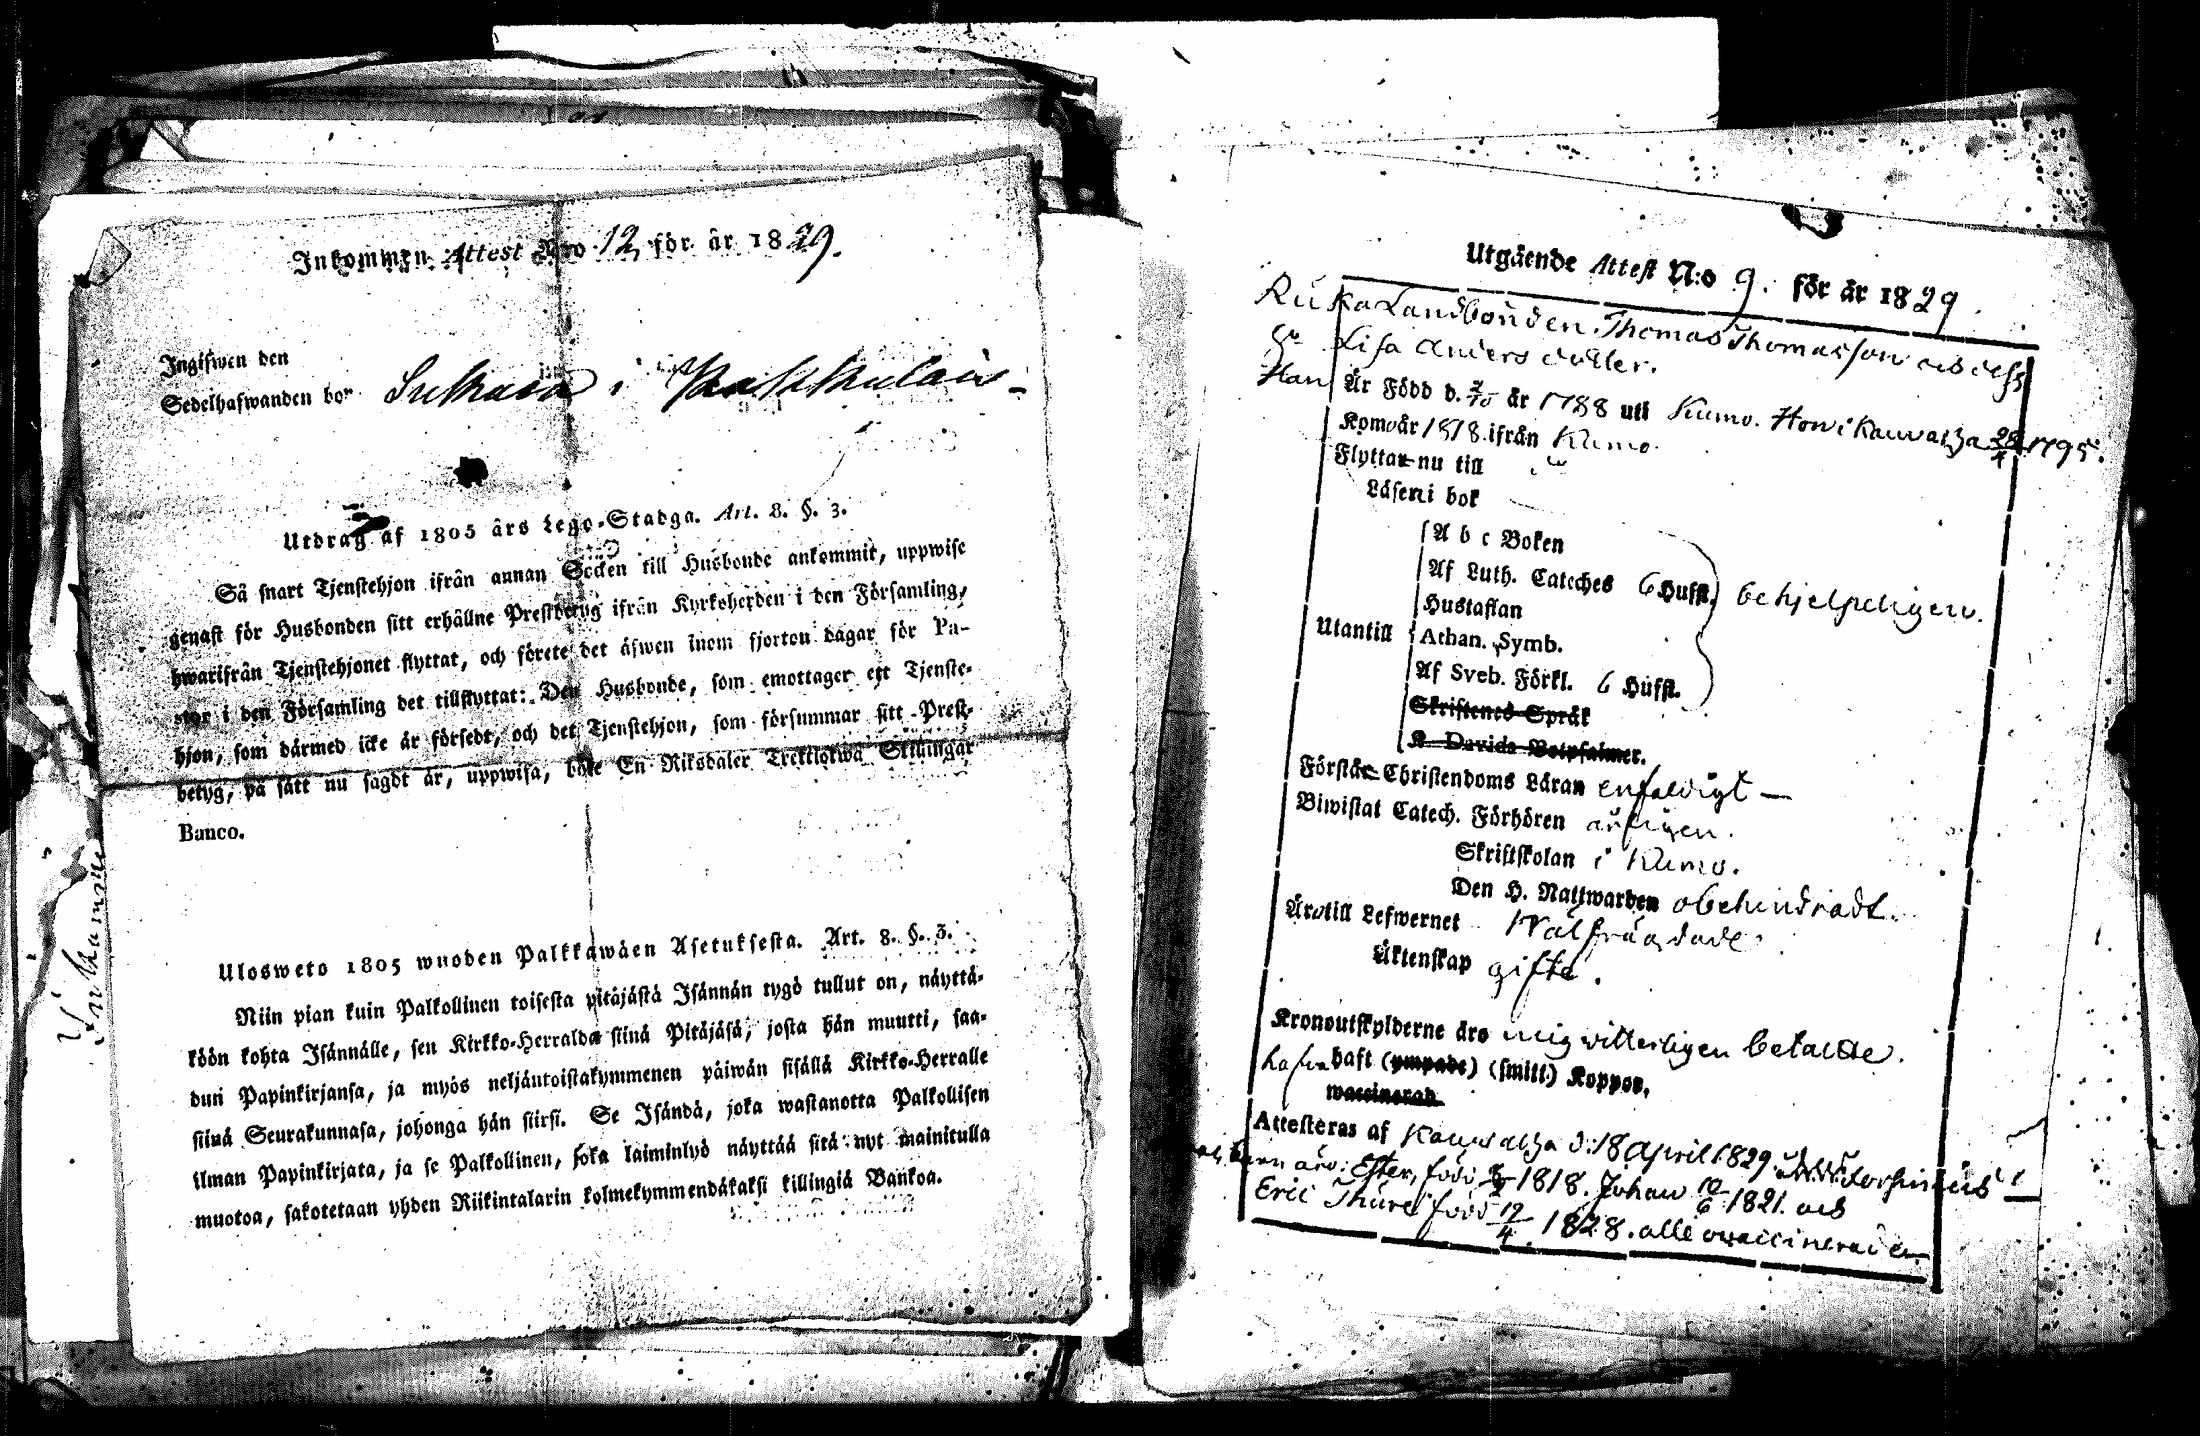 Inkommen Attest Nro 12 för år 1829.
Ingifwen den
Sedelhafwanden bor Sukara i
Utdrag af 1805 års Lego-Stadga. Art. 8. §. 3.
Så snart Tjenstehjon ifrån annan Socken till Husbonde ankommit, uppwise
genast för Husbonden sitt erhållne Prestbetyg ifrån Kyrkoherden i den Församling,
hwarifrån Tjenstehjonet flyttat, och förete det äfwen inom fjorton dagar för Pa-
stor i den Församling det tillflyttat: Den Husbonde, som emottager ett Tjenste-
hjon, som därmed icke är försedt, och det Tjenstehjon, som försummar sitt Prest-
betyg, på sätt nu sagdt är, uppwisa, böte En Riksdaler Trettiotwå Skillingar
Banco.
Ulosweto 1805 wuoden Palkkawäen Asetuksesta. Art. 8. §. 3.
Niin pian kuin Palkollinen toisesta pitäjästä Isännän tygö tullut on, näyttä-
köön kohta Isännälle, sen Kirkko-Herralda siinä Pitäjäsä, josta hän muutti, saa-
dun Papinkirjansa, ja myös neljäntoistakymmenen päiwän sisällä Kirkko-Herralle
siinä Seurakunnasa, johonga hän siirsi. Se Isändä, joka wastanotta Palkollisen
ilman Papinkirjata, ja se Palkollinen, joka laiminlyö näyttää sitä nyt mainitulla
muotoa, sakotetaan yhden Riikintalarin kolmekymmendäkaksi killingiä Bankoa.
Utgående Attest N:o 9. för år 1829
Landbonden Thomas Thomasson och dess
Lisa Anders dotter.
Han Är Född d. 2/10 år 1788 uti Kumo. Hon i Kauvatza 28/4 1795.
Kom år 1818 ifrån Kumo.
Flyttar nu till
Läser i bok
A b c Boken
Af Luth. Cateches 6 Hufst. behjelpeligen.
Hustaflan
Utantill Athan. Symb.
Af Sveb. Förkl. 6 Hufst.
Skriftenes Språk
K. Davids Botpsalmer.
Förstår Christendoms Läran enfaldigt —
Biwistat Catech. Förhören årligen.
Skriftskolan i Kumo.
Den H. Nattwarden obehindradt.
Äro till Lefwernet Wälfrägdade
Äktenskap gifte.
Kronoutskylderne äro mig vitterligen betalde.
hafva haft (ympade) (smitt:) Koppor,
waccinerad
Attesteras af Kauvatza d. 18 April 1829.
barn äro: Ester, född 1818. Johan 10/6 1821. och
Eric Thure född 12/4 1828. alle ovaccinerade